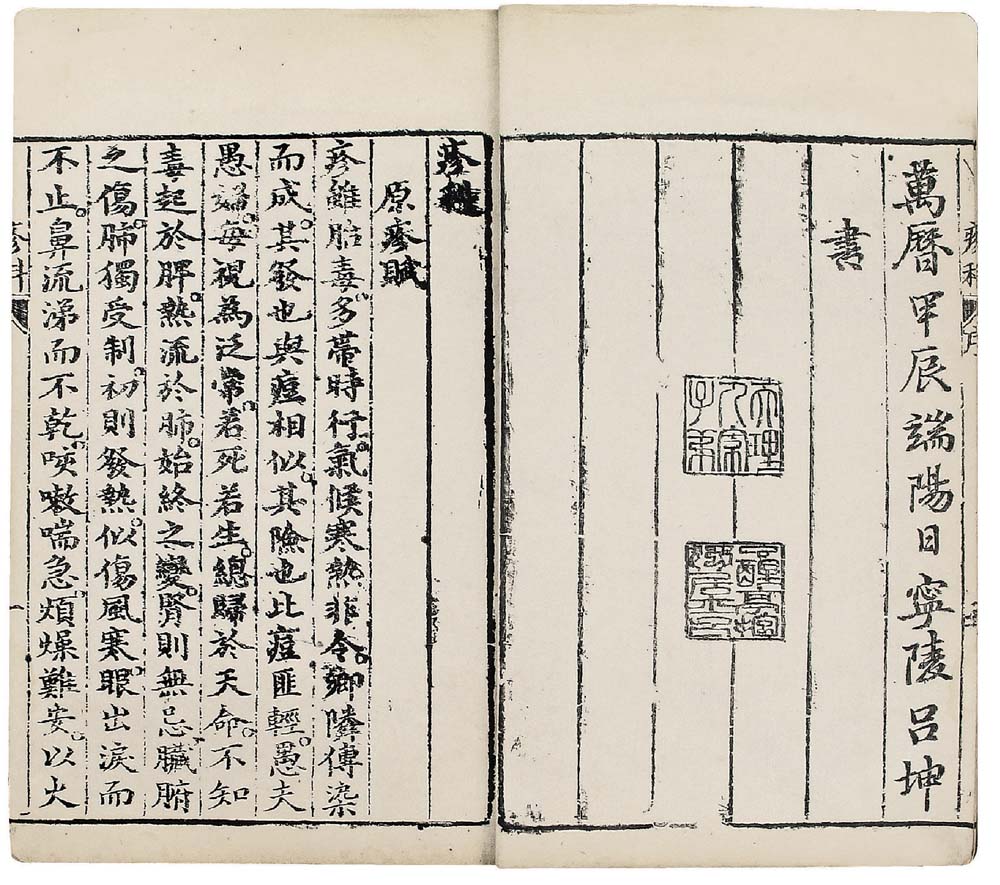 疹科 序
萬曆甲辰端陽日寧陵呂坤
書
大理
人家
疹科
原疹賦
疹雖胎毒。多帶時行。氣候寒熱非令。鄉隣傳染
而成。其發也與痘相似。其險也比痘匪輕。愚夫
愚婦。每視為泛常。若死若生。總歸於天命。不知
毒起於脾。熱流於肺。始終之變。腎則無忌。臟腑
之傷。肺獨受制。初則發熱。似傷風寒。眼出淚而
不止。鼻流涕而不乾。咳嗽喘急。煩燥難安。以火
疹科 一